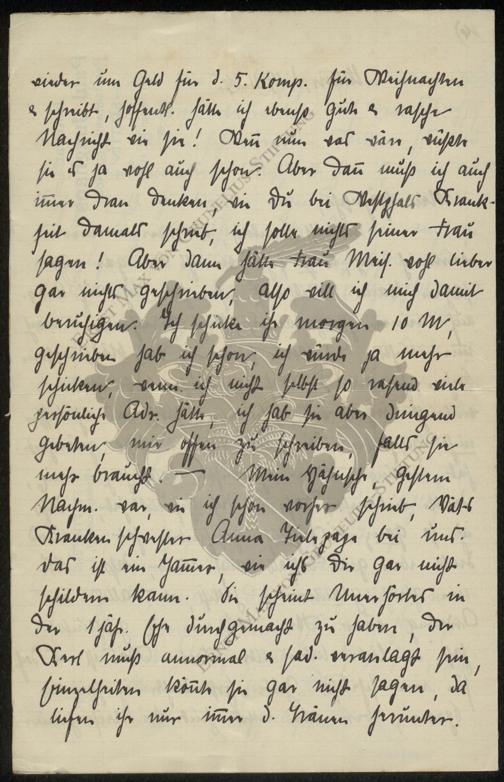 wieder um Geld für d. 5. Komp. für Weihnachten
& schreibt, hoffentl. hätte ich ebenso gute & rasche
Nachricht wie sie! Wenn nun was wäre, wüßte
sie es ja wohl auch schon. Aber dann muß ich auch
immer dran denken, wie Du bei Westphals Krank-
heit damals schrieb, ich solle nichts seiner Frau
sagen! Aber dann hätte Frau Meis. wohl lieber
gar nichts geschrieben, also will ich mich damit
beruhigen. Ich schicke ihr morgen 10 M,
geschrieben hab ich schon, ich würde ja mehr
schicken, wenn ich nicht selbst so rasend viele
persönliche Adr. hätte, ich hab sie aber dringend
gebeten, mir offen zu schreiben, falls sie
mehr braucht. — Mein, gestern
Nachm. war, wie ich schon vorher schrieb, Vaters
Krankenschwester Anna bei uns.
Das ist ein Jammer, wie ichs Dir gar nicht
schildern kann. Sie scheint Unerhörtes in
der 1jähr. Ehe durchgemacht zu haben, der
Kerl muß annormal & sad. veranlagt sein,
Einzelheiten konnte sie gar nicht sagen, da
liefen ihr nur immer d. Tränen herunter.
KURT MAX VON GRUNELIUS STIFTUNG